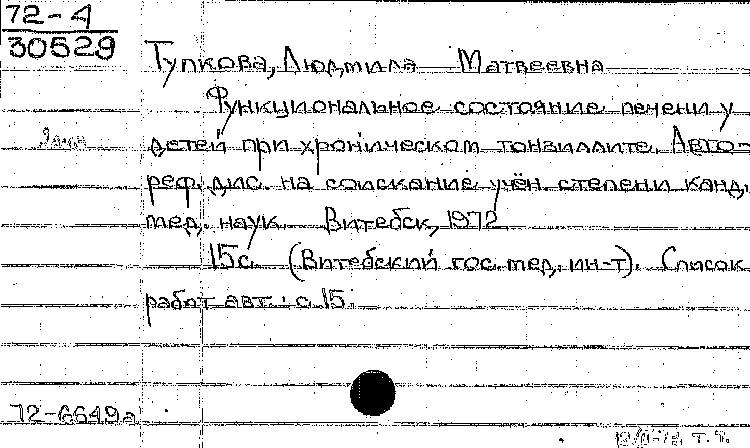 72-4
30529
Тупкова, Людмила Матвеевна
Функциональное состояние печени у
детей при хроническом тонзиллите. Авто-
реф. дис. на соискание учён. степени канд.
мед. наук. Витебск, 1972
15с. (Витебский гос. мед. ин-т). Список
работ авт.: с.15.
72-6649а